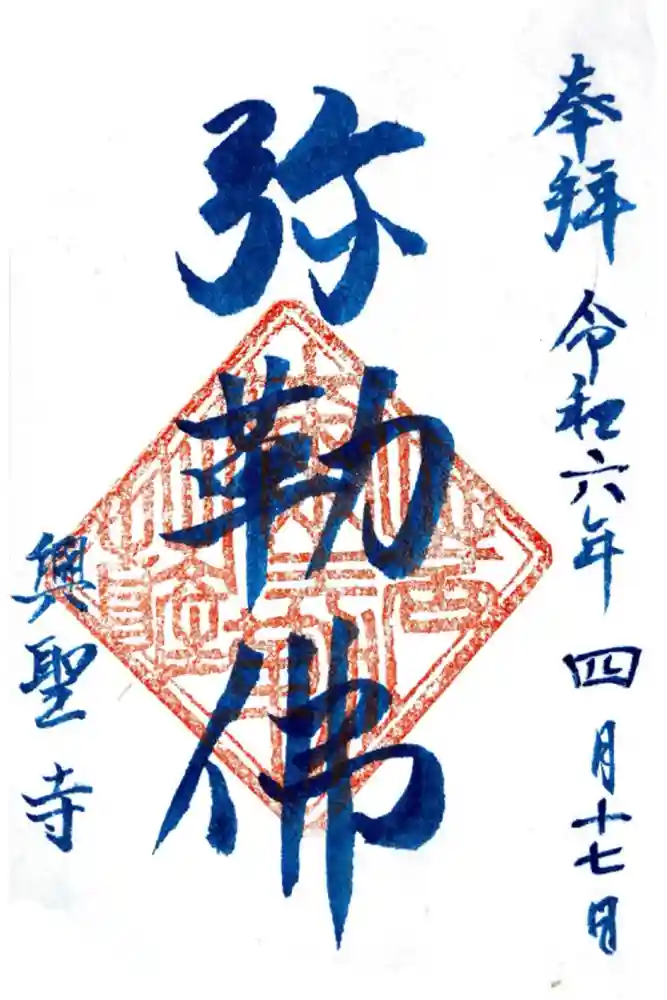 奉拝 令和六年 四月十七日
弥勒佛
興聖寺